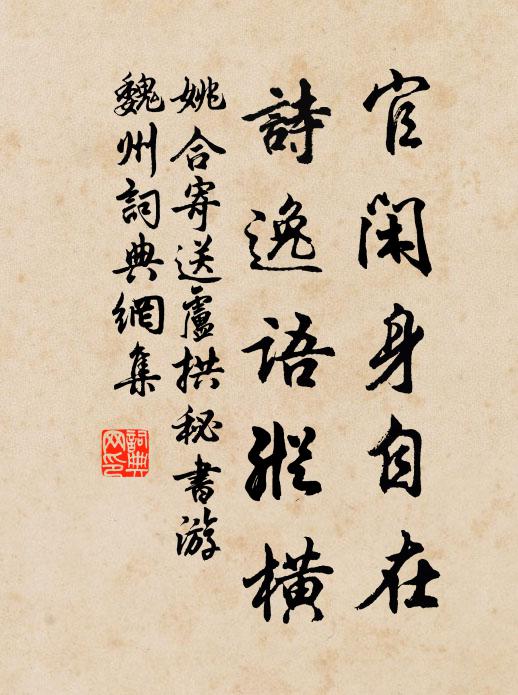 官閑身自在
詩逸語縱橫
姚合寄送盧拱秘書游
魏州詞典網集
詞典网印